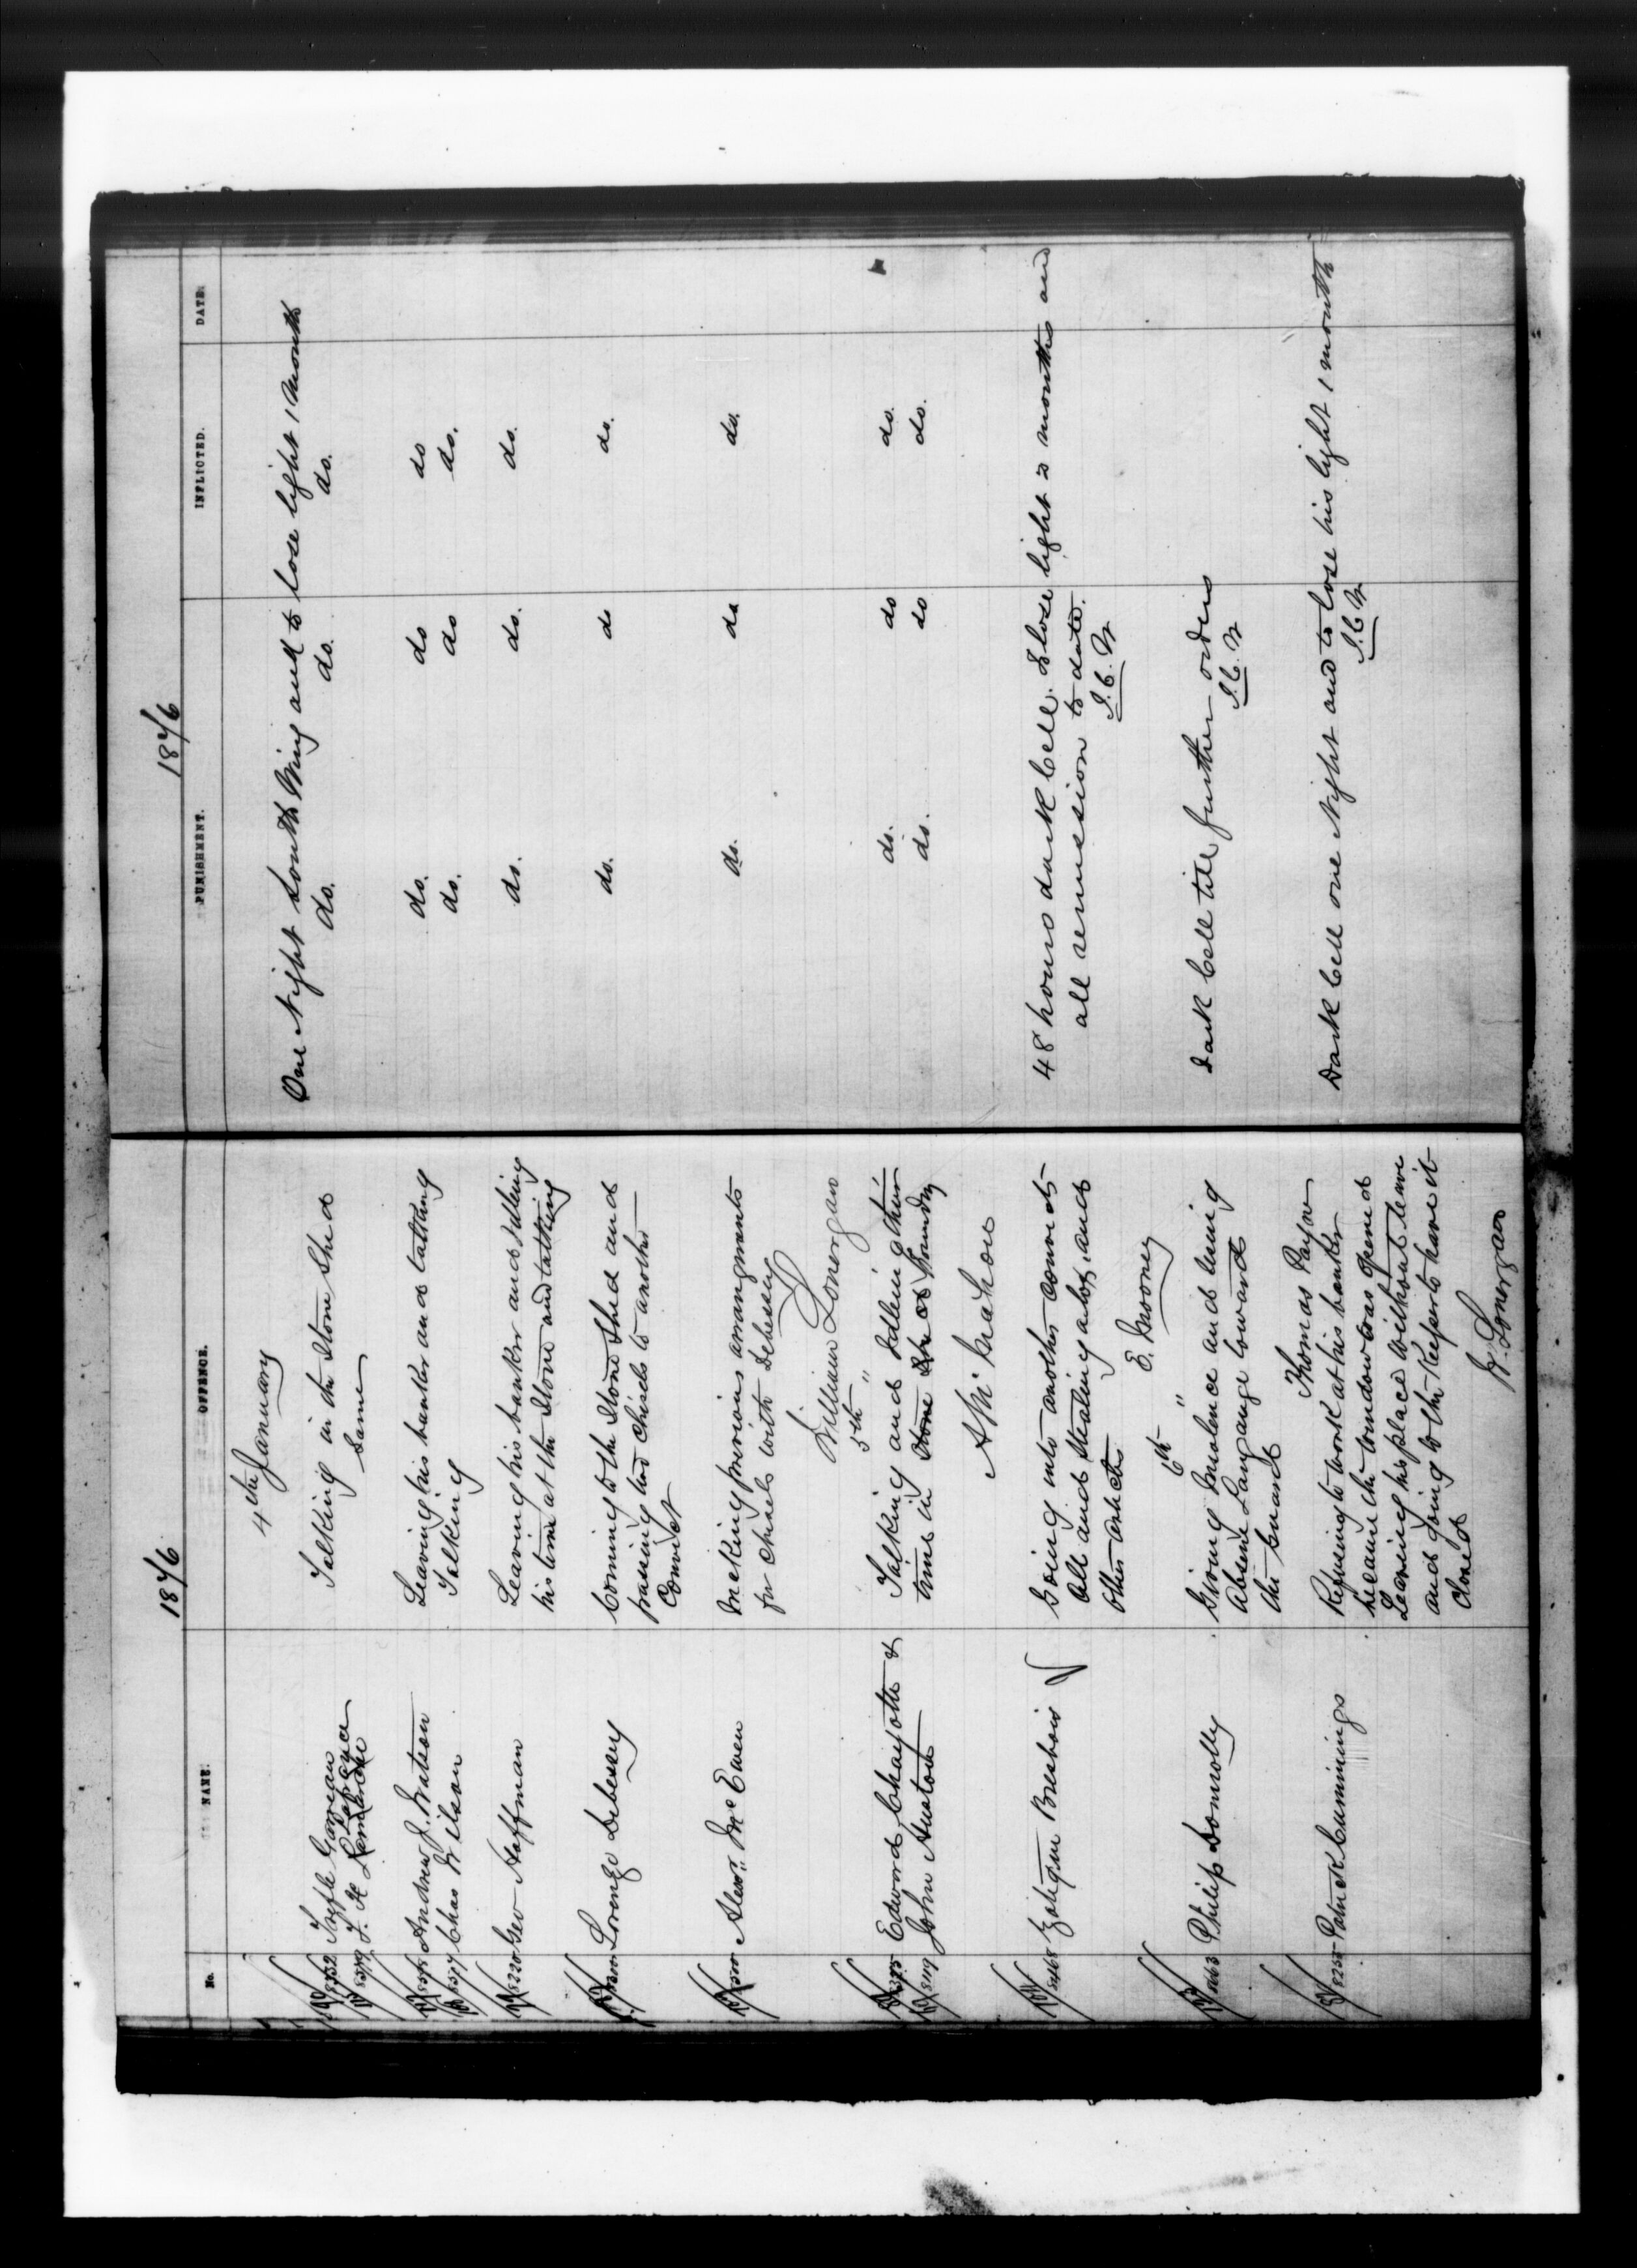 1876
No.
NAME.
OFFENCE.
4th January
8352 Gavreau
Talking in the Stone Shed
8379 J. H. Lafrance
Same
8375 Andrew J. Watson
Leaving his banker and talking
8377 Chas Wilson
Talking
8220 Geo Hoffman
Leaving his banker and idling
his time at the Stove and talking
Lorenzo Debessey
Coming to the Stone Shed and
passing two chisels to another
Convict
Alexr. McEwen
Making previous arrangments
for chisels with Debessey
William Lonergan
5th "
Edward Chayotte &
Talking and Idleing their
8119 John Huston
time in Stone Shed Foundry
A McMahon
8468 Breshois
Going into another convicts
Cell and Stealing a box, and
other articles
E. Mooney
6th "
Philip Donnolly
Giving Insolence and Using
Abusive Langauge towards
the Guards
Thomas Payson
8255 Patrick Cummings
Refusing to work at his banker
because the window was opened
Leaving his place without leave
and going to the Keeper to have it
Closed
W. Lonergan
1876
PUNISHMENT.
INFLICTED.
DATE.
One Night South Wing and to lose light 1 Month
do. do. do.
do. do do
do. do do.
do. do. do.
do. do do.
do. do do.
do. do do.
do. do do.
48 hours dark Cell. & lose light 2 months and
all remission to date.
J.C.W
Dark Cell till further orders
J.C.W
Dark Cell one Night and to lose his light 1 month
J.C.W